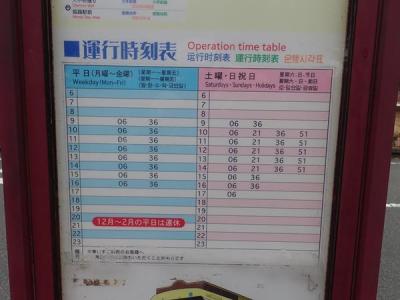 運行時刻表 Operation time table
运行时刻表 運行時刻表 운행시각표
平日(月曜～金曜)
Weekday (Mon-Fri)
土曜・日祝日
Saturdays・Sundays・Holidays
6 6
7 7
8 8
9 06 36 9 06 36
10 06 36 10 06 21 36 51
11 06 36 11 06 21 36 51
12 06 36 12 06 21 36 51
13 06 36 13 06 21 36 51
14 06 36 14 06 21 36 51
15 06 36 15 06 36
16 06 36 16 06 36
17 17 06
18 18
19 19
20 20
21 21
22 22
23 23
12月～2月の平日は運休